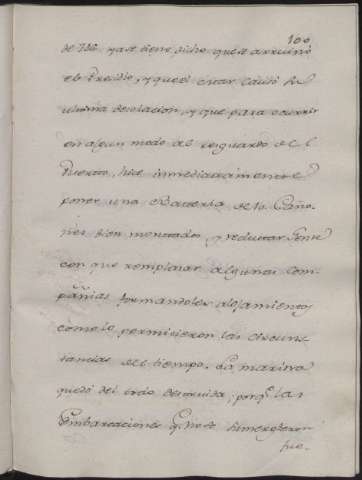 100
de 780. ya se tiene dicho que se arruinó
el Presidio, y que el citar causó su
ultima desolacion, y que para ocurrir
en algun modo al resguardo del
Puerto, hize inmediatamente
poner una Bateria de 10 Caño-
nes bien montados, y reclutar Gente
con que remplazar algunas Com-
pañias formandoles alojamientos
como lo permitieron las circuns-
tancias del tiempo. La marina
quedó del todo destruida; porq.e las
Embarcaciones q.e no se sumergieron
fue-